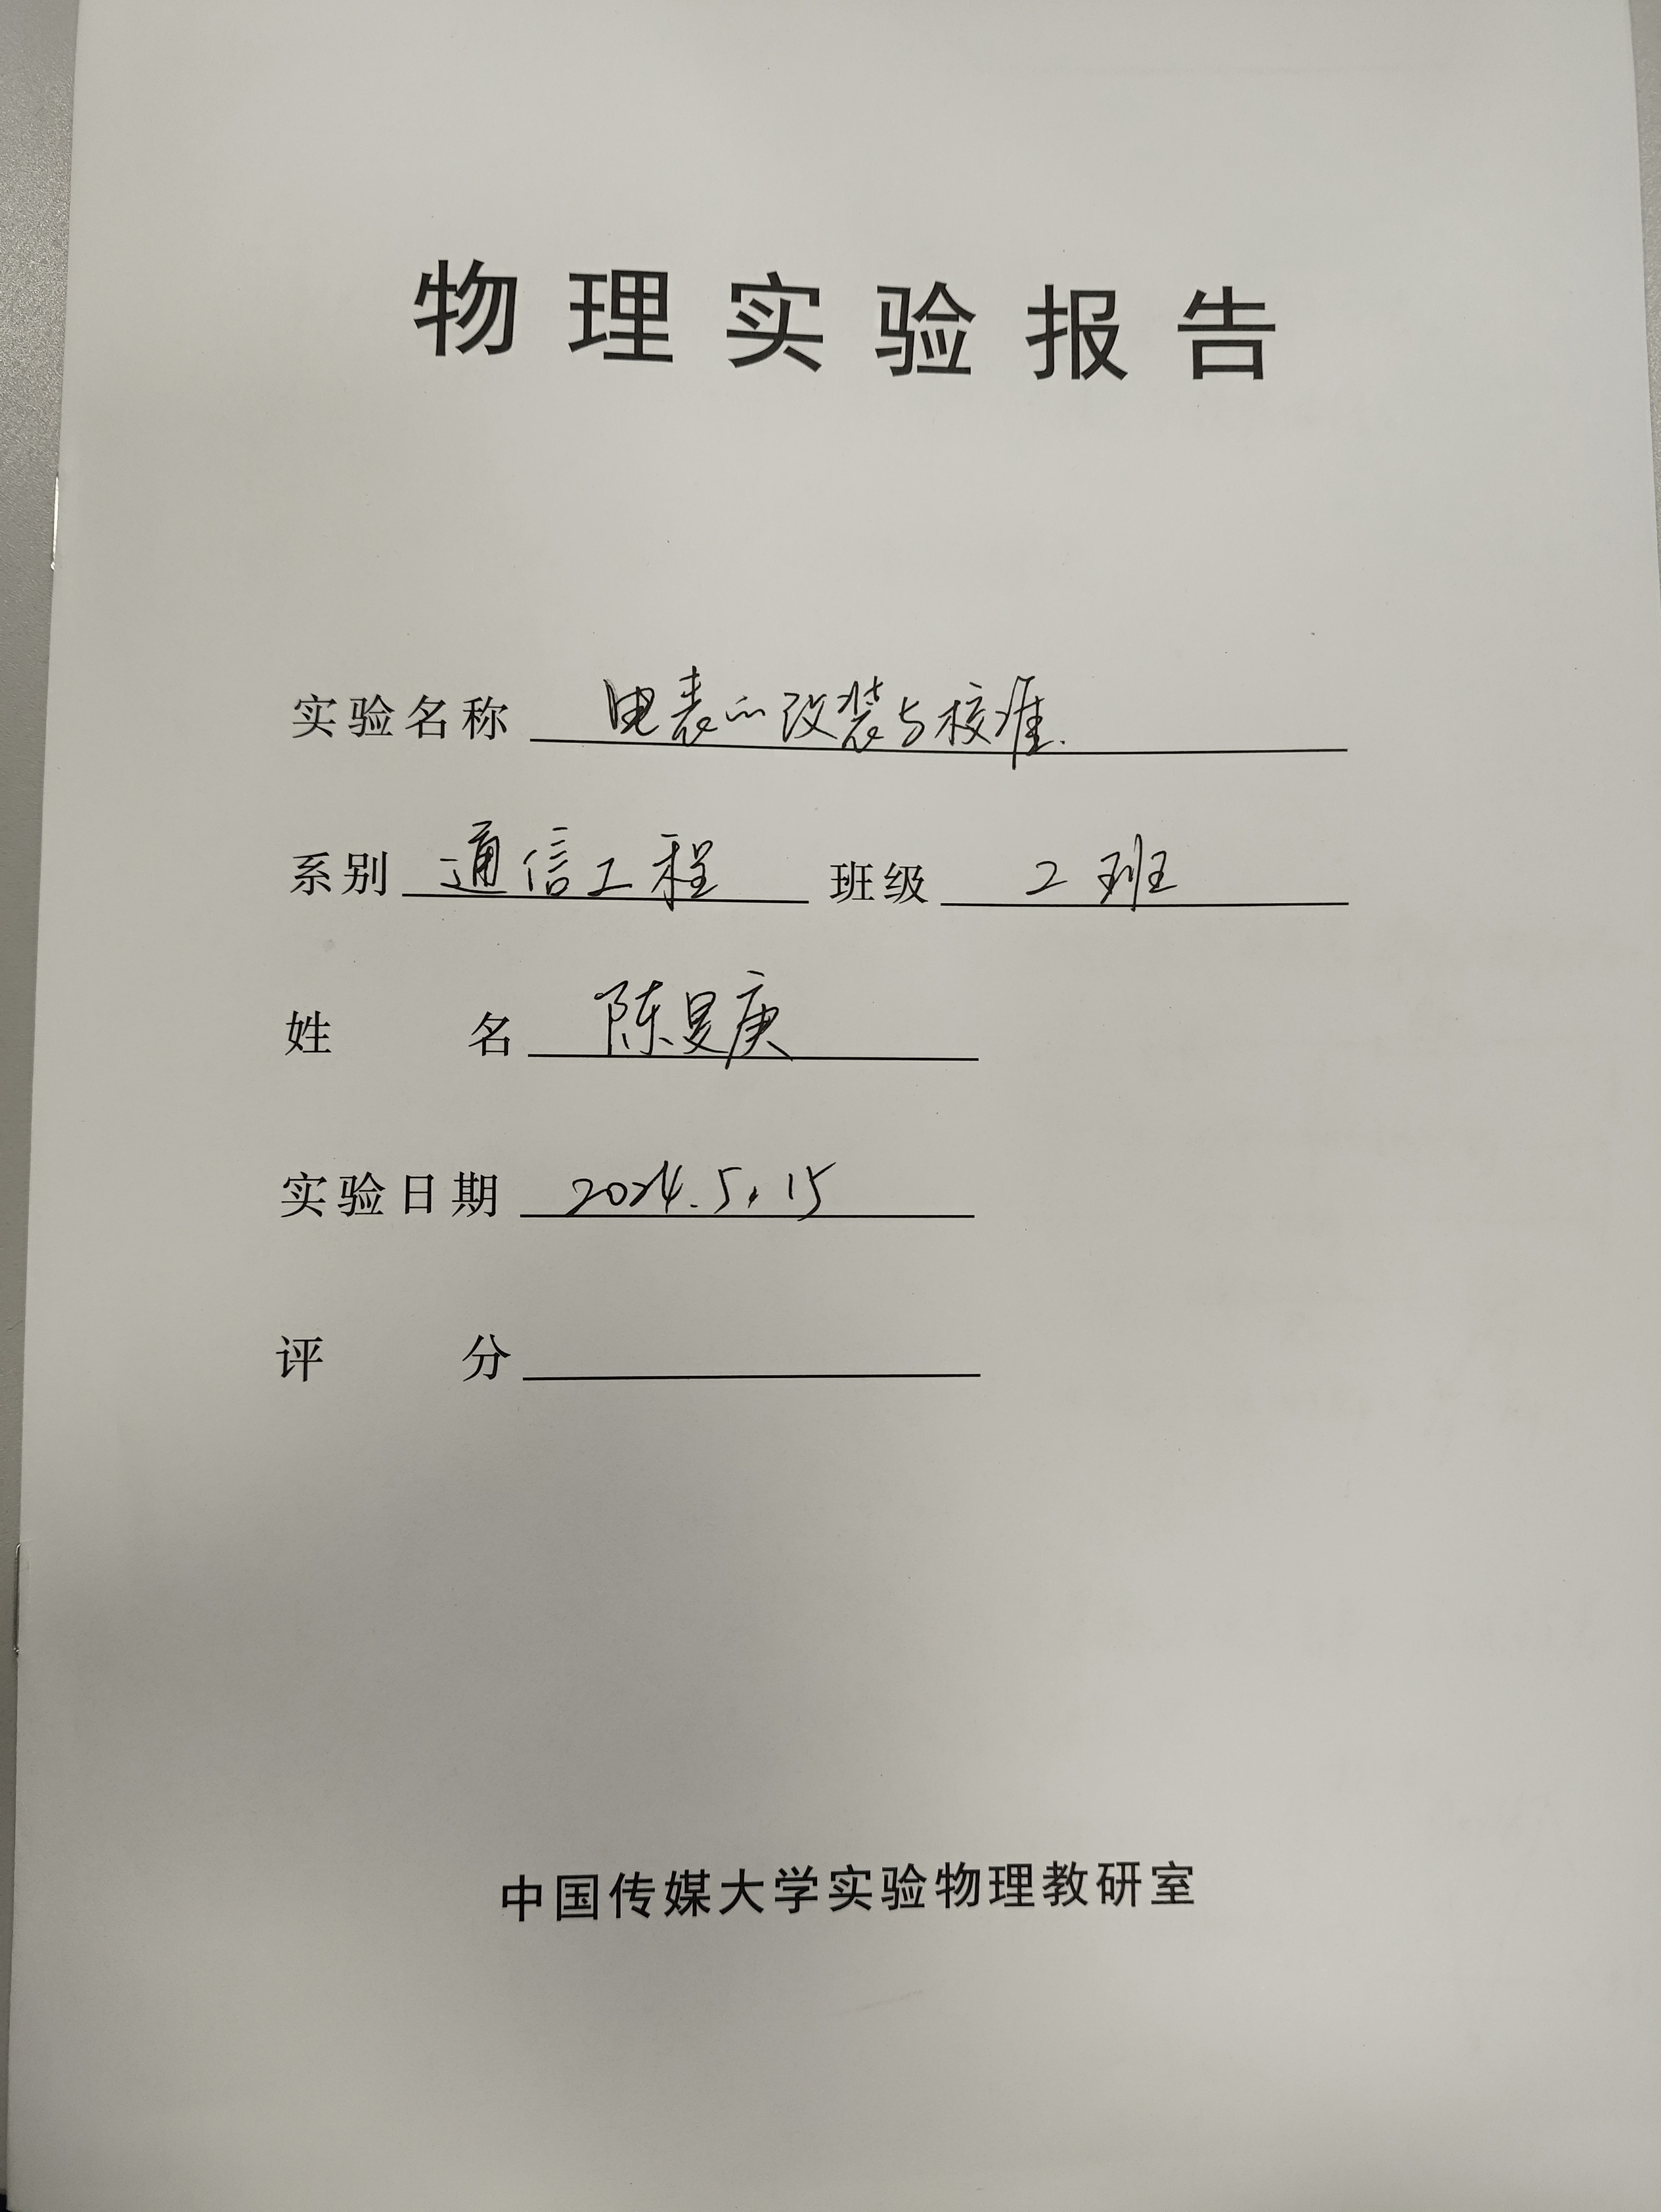 物理实验报告
实验名称 电表的改装与校准.
系别 通信工程 班级 2班
姓名 陈旻庚
实验日期 2024.5.15
评分
中国传媒大学实验物理教研室